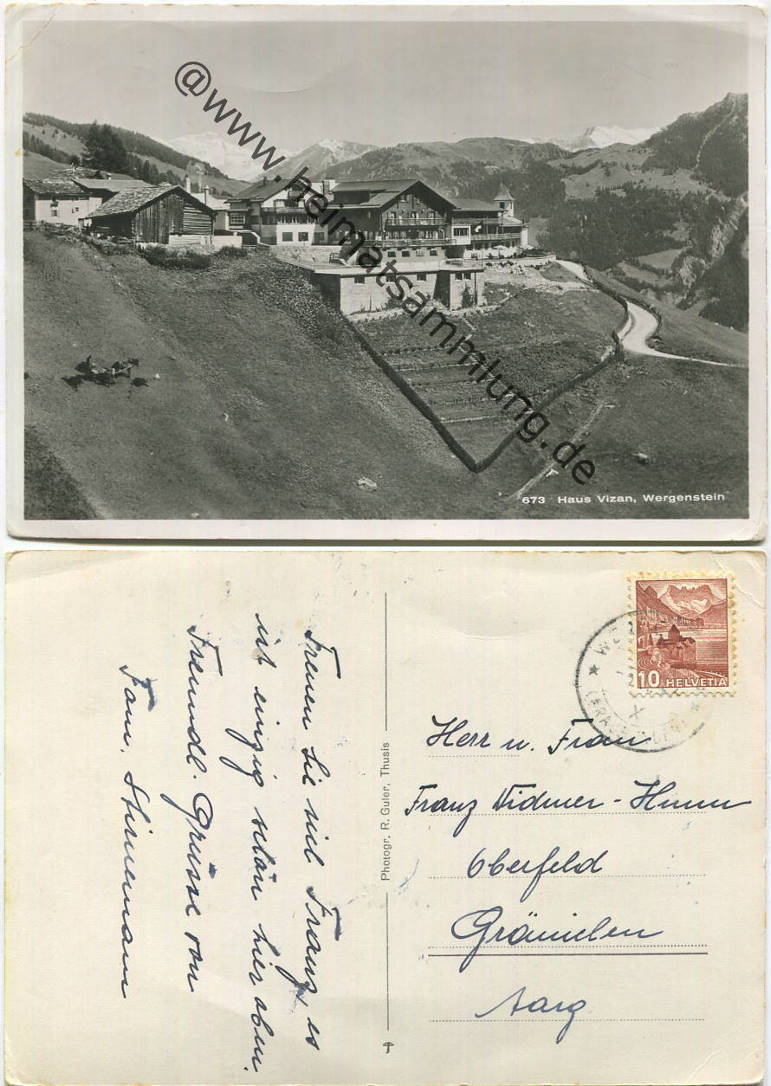 @www.heimatsammlung.de
673 Haus Vizan, Wergenstein
Freuen Sie sich Franz, es
ist einzig schön hier oben.
Freundl. Grüsse von
Fam.
Photogr. R. Guler, Thusis
10 HELVETIA
Herr u. Frau
Franz Widmer-Hunn
Oberfeld
Gränichen
Aarg